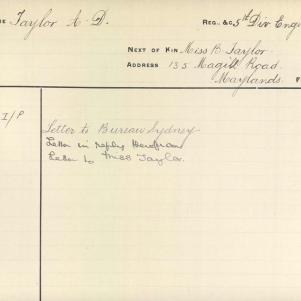 ME Taylor A. D. REG. &C 5th Div Engi
NEXT OF KIN Miss B. Taylor.
ADDRESS 135 Magill Road.
Maylands.
I/P
Letter to Bureau Sydney
Letter in reply therefrom
Letter to Miss Taylor.